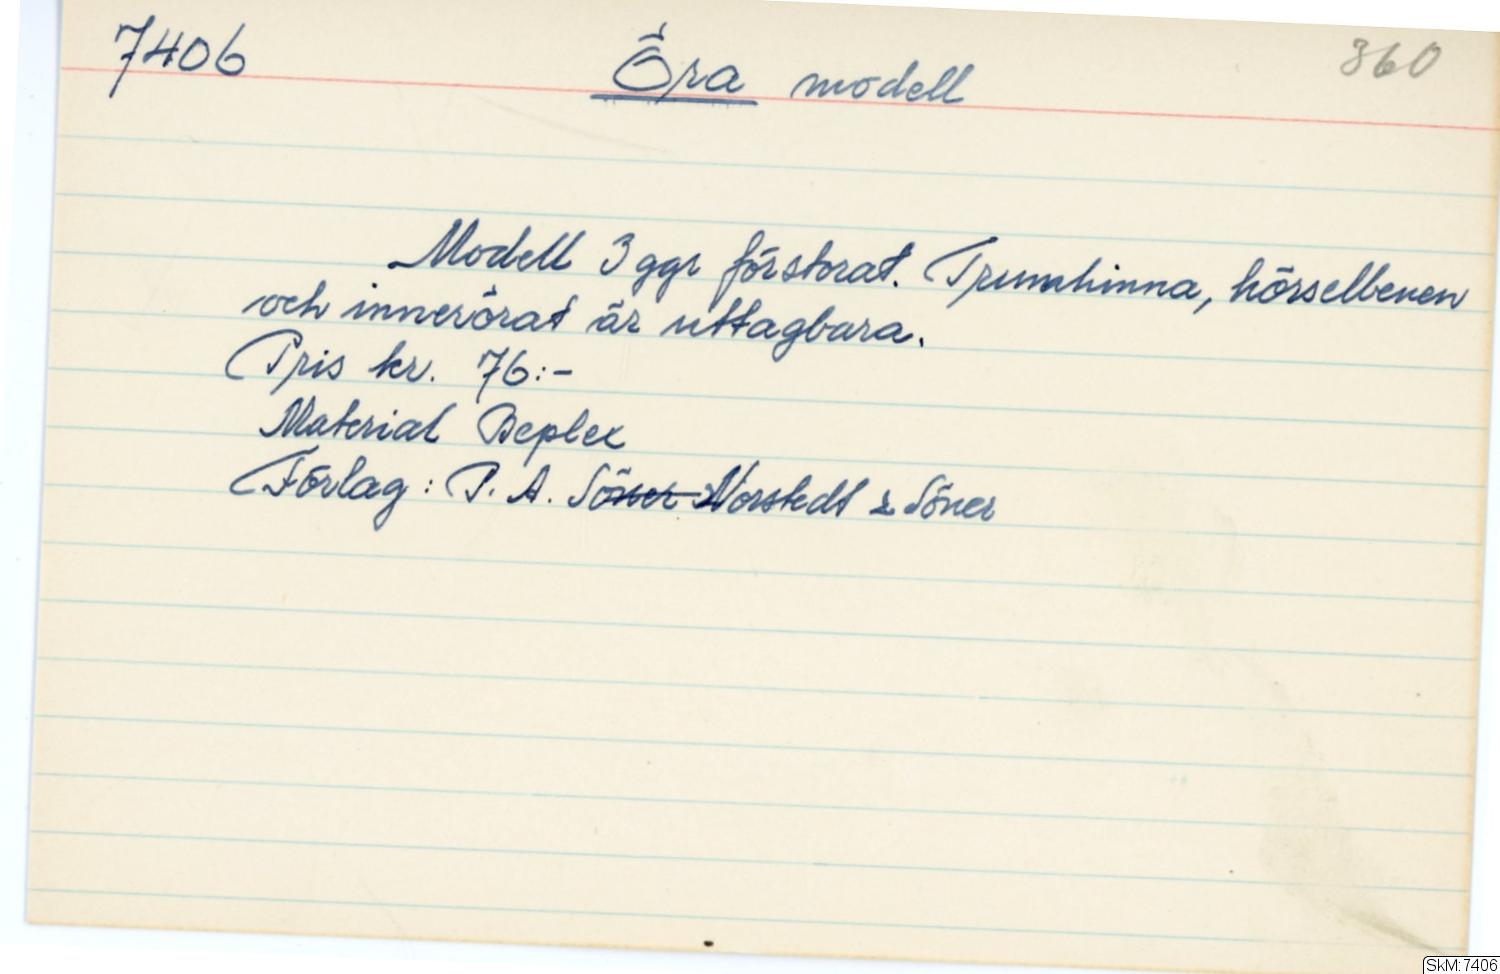 7406 Öra modell 360
Modell 3 ggr förstorat. Trumhinna, hörselbenen
och innerörat är uttagbara.
Pris kr. 76:-
Material Beplex
Förlag: P. A. Söner Norstedt & Söner
SkM:7406